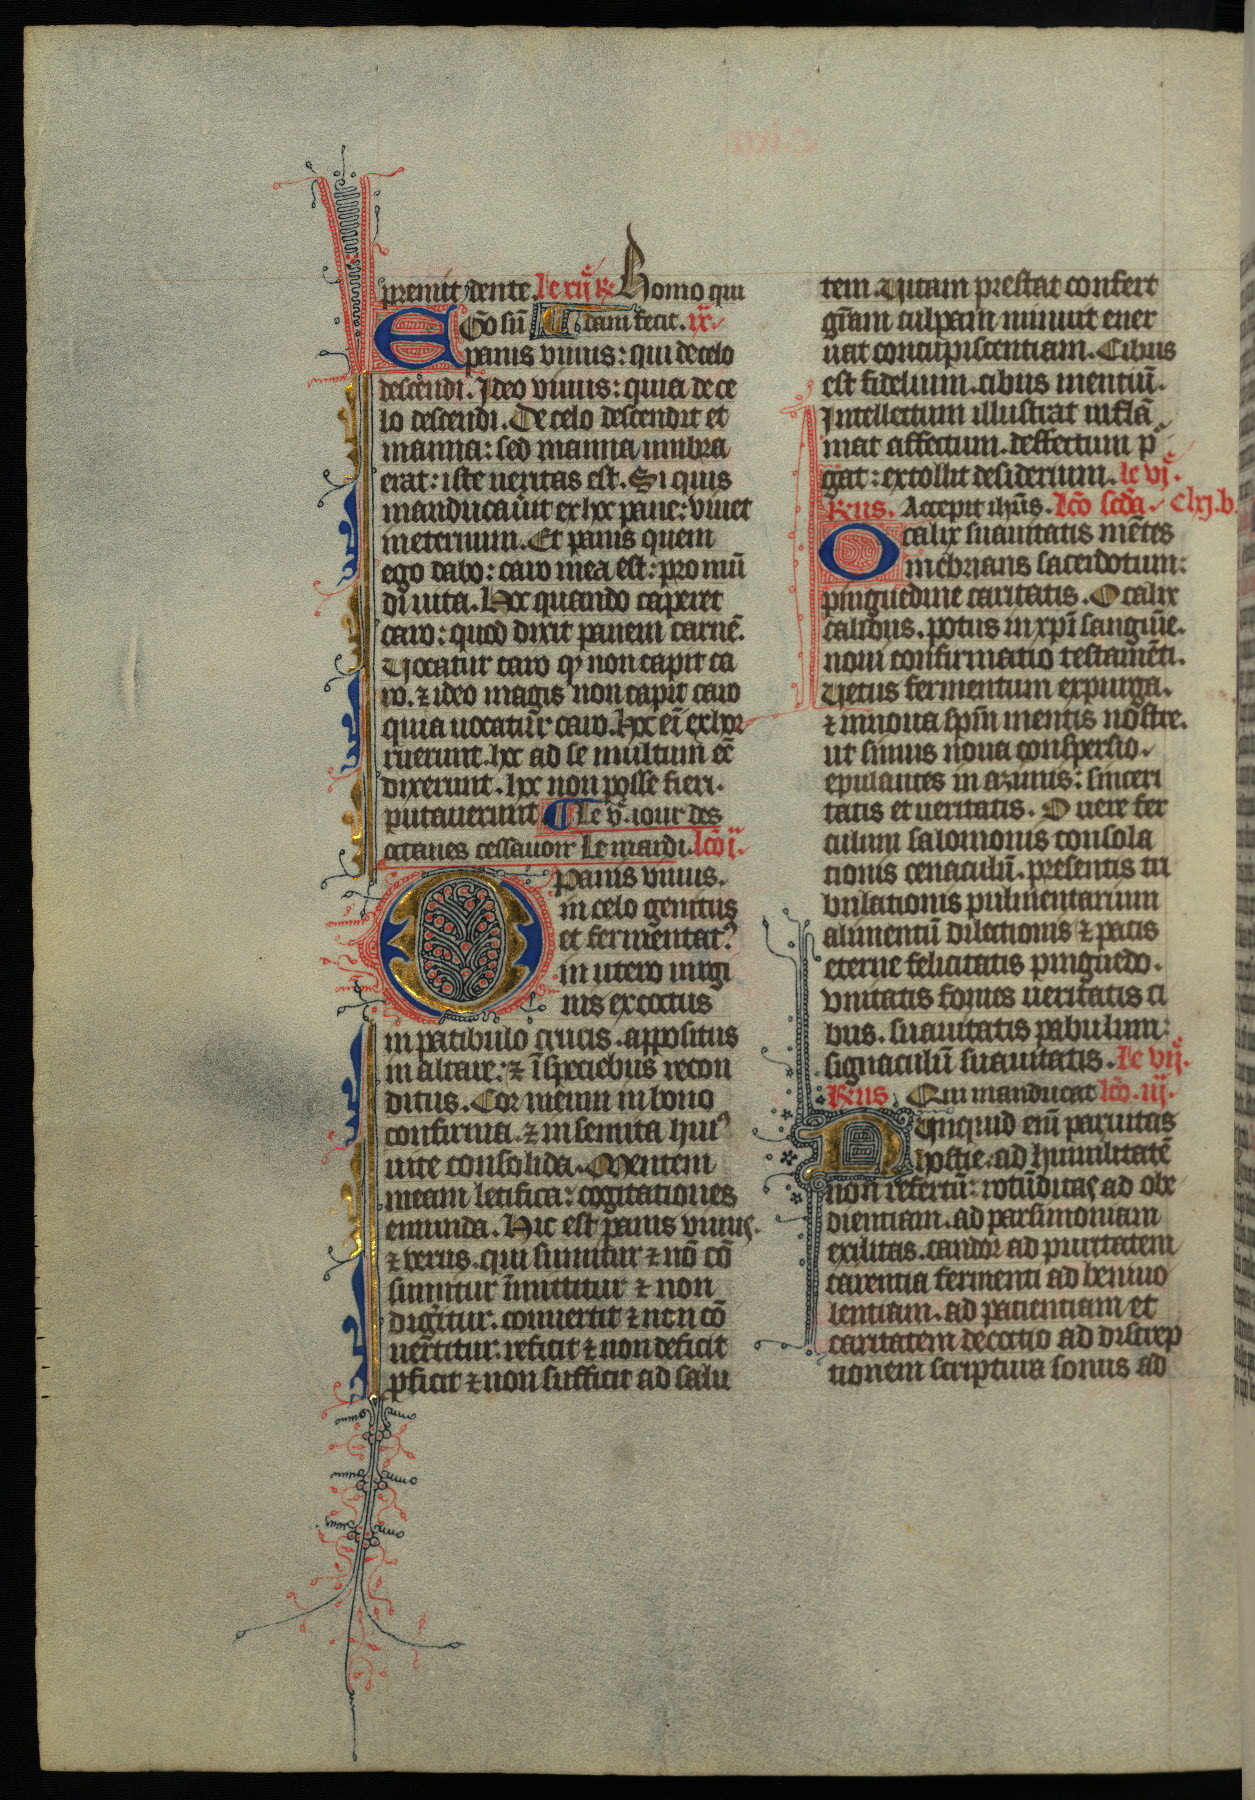 premit dente. le xij͛ R͛ Homo qui
EGo sũ ¶ dam fecit. ix.
panis viuus: qui de celo
descendi. Ideo viuus: quia de ce
lo descendi. De celo descendit et
manna: sed manna umbra
erat: iste ueritas est. Si quis
manducau̾it ex hoc pane: viuet
in eternum. Et panis quem
ego dabo: caro mea est: pro mũ
di uita. Hoc quando caperet
caro: quod dixit panem carnẽ.
Vocatur caro qꝫ non capit ca
ro. ⁊ ideo magis non capit caro
quia uocatur caro. Hoc eĩ exhor
ruerunt. hoc ad se multum eẽ
dixerunt. hoc non posse fieri.
putauerunt ¶ Le v. iour des
octaues cessauoir Le mardi. lcõ i.
O panis viuus.
in celo genitus
et fermentatꝰ
in utero uirgi
nis excoctus
in patibulo crucis. appositus
in altare: ⁊ ĩ speciebus recon
ditus. Cor meum in bono
confirma. ⁊ in semita huiꝰ
uite consolida. Mentem
meam letifica: cogitationes
emunda. Hic est panis viuus.
⁊ verus. qui sumitur ⁊ nõ cõ
sumitur ĩmittitur ⁊ non
dig̾itur. conuertit ⁊ non cõ
uertitur. reficit ⁊ non deficit
ꝓficit ⁊ non sufficit ad salu
tem. Vitam prestat confert
gr̃am culpam minuit ener
uat concupiscentiam. Cibus
est fidelium. cibus mentiũ.
Intellectum illustrat inflã
mat affectum. deffectum pur
gat: extollit desiderium. le vj͛.
R͛us. Accepit ihũs. lcõ scd̃a. clxj. b.
O calix suauitatis mẽtes
inebrians sacerdotum:
pinguedine caritatis. O calix
calidus. potus in xp̃i sanguĩe.
noui confirmatio testamẽti.
Vetus fermentum expurga.
⁊ innoua sp̃m mentis nostre.
ut simus noua conspersio.
epulantes in azimis: sinceri
tatis et ueritatis. O uere fer
culum salomonis consola
tionis cenaculũ. presentis tri
bulationis pulmentarium
alimentũ dilectionis ⁊ pacis
eterne felicitatis pinguedo.
vnitatis fomes ueritatis ci
bus. suauitatis pabulum:
signaculũ suauitatis. le vij͛.
R͛us. Qui manducat lcõ. iij.
Vnquid eim̃ paruitas
hostie. ad humilitatẽ
non refertur̃: rotũditas ad obe
dientiam. ad parsimoniam
exilitas. candor ad puritatem
carentia fermenti ad beniuo
lentiam. ad patientiam et
caritatem decoctio ad discrep
tionem scriptura sonus ad